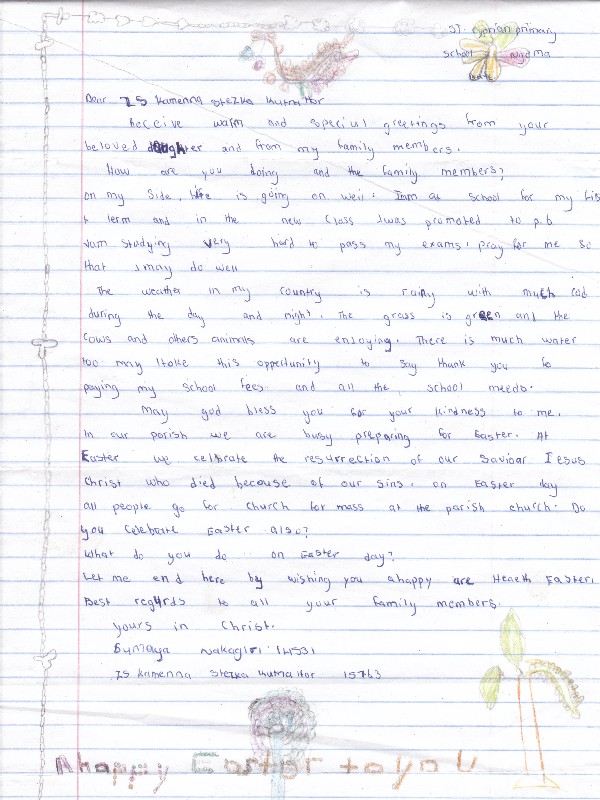 ST. Cyprian primary
school
Dear ZS Kamenna Stezka Kutna Hor
Receive warm and special greetings from your
beloved daughter and from my family members.
How are you doing and the family members?
on my side, life is going on well. Imm at school for my fis
t term and in the new class Iwas promoted to p.6
Iam studying very hard to pass my exams, pray for me so
that Imay do well
The weather in my country is rainy with much cod
during the day and night. The grass is green and the
cows and others animals are enjoying. There is much water
too may Itake this opportunity to say thank you fo
paying my school fees and all the school needs.
May god bless you for your kindness to me.
In our parish we are busy preparing for Easter. At
Easter we celbrate the resurrection of our Saviour Jesus
Christ who died because of our sins. on Easter day
all people go for Church for mass at the parish church. Do
you celebrate Easter also?
What do you do on Easter day?
Let me end here by wishing you ahappy are Heneth Easter.
Best regards to all your family members.
yours in Christ.
Sumaya Nakagiri
ZS Kamenna Stezka Kutna Hor 15763
Ahappy Easter to you